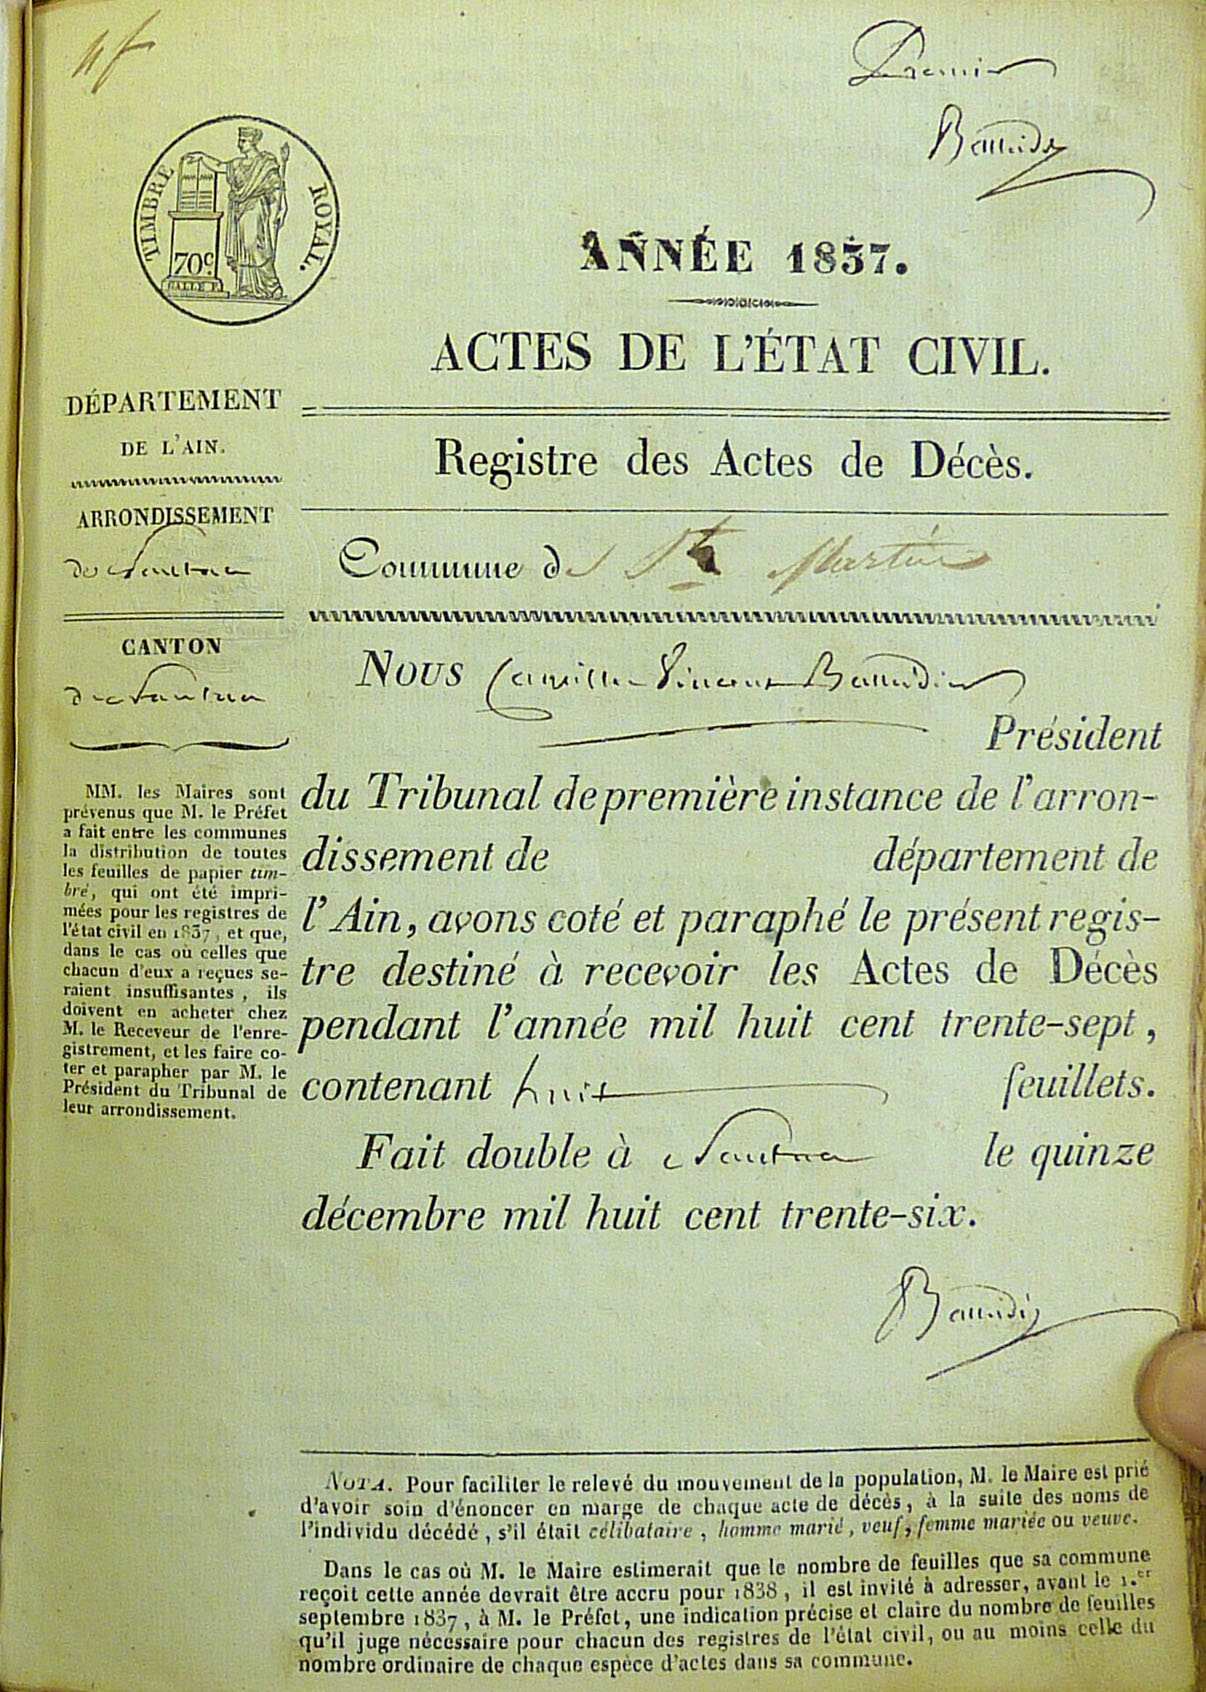 Premier
Baudin
TIMBRE ROYAL.
70c
ANNÉE 1837.
ACTES DE L'ÉTAT CIVIL.
DÉPARTEMENT
DE L'AIN.
Registre des Actes de Décès.
ARRONDISSEMENT
de Nantua
Commune de St Martin
CANTON
de Nantua
MM. les Maires sont
prévenus que M. le Préfet
a fait entre les communes
la distribution de toutes
les feuilles de papier tim-
bré, qui ont été impri-
mées pour les registres de
l'état civil en 1837, et que,
dans le cas où celles que
chacun d'eux a reçues se-
raient insuffisantes, ils
doivent en acheter chez
M. le Receveur de l'enre-
gistrement, et les faire co-
ter et parapher par M. le
Président du Tribunal de
leur arrondissement.
Nous Camille Vincent
Président
du Tribunal de première instance de l'arron-
dissement de département de
l'Ain, avons coté et paraphé le présent regis-
tre destiné à recevoir les Actes de Décès
pendant l'année mil huit cent trente-sept,
contenant huit feuillets.
Fait double à Nantua le quinze
décembre mil huit cent trente-six.
NOTA. Pour faciliter le relevé du mouvement de la population, M. le Maire est prié
d'avoir soin d'énoncer en marge de chaque acte de décès, à la suite des noms de
l'individu décédé, s'il était célibataire, homme marié, veuf, femme mariée ou veuve.
Dans le cas où M. le Maire estimerait que le nombre de feuilles que sa commune
reçoit cette année devrait être accru pour 1838, il est invité à adresser, avant le 1.er
septembre 1837, à M. le Préfet, une indication précise et claire du nombre de feuilles
qu'il juge nécessaire pour chacun des registres de l'état civil, ou au moins celle du
nombre ordinaire de chaque espèce d'actes dans sa commune.